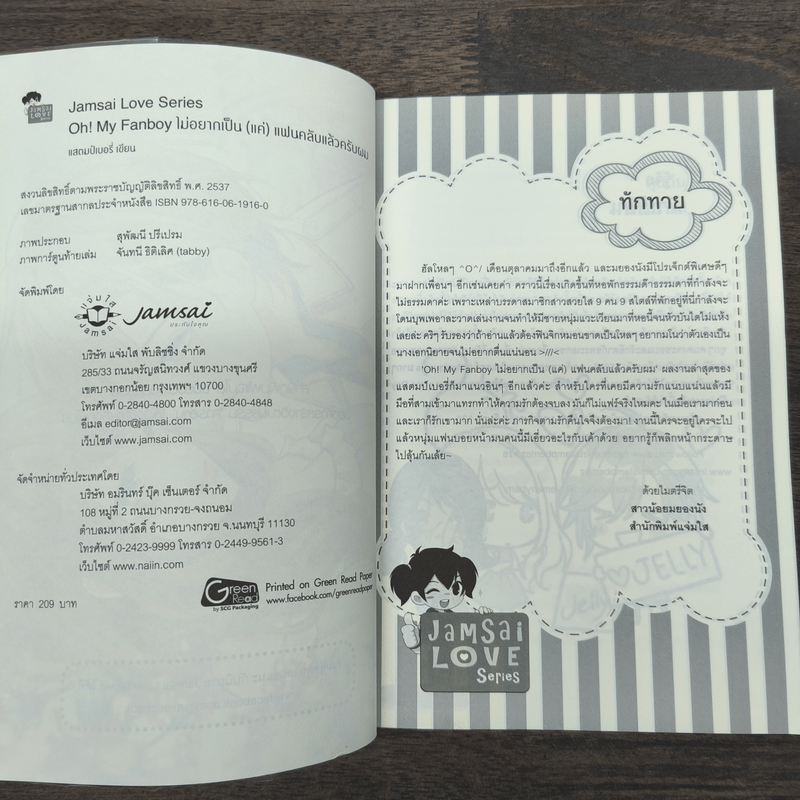 JAMSAI
LOVE
Series
Jamsai Love Series
Oh! My Fanboy ไม่อยากเป็น (แค่) แฟนคลับแล้วครับผม
แสตมป์เบอรี่ เขียน
สงวนลิขสิทธิ์ตามพระราชบัญญัติลิขสิทธิ์ พ.ศ. 2537
เลขมาตรฐานสากลประจำหนังสือ ISBN 978-616-06-1916-0
ภาพประกอบ สุพัฒนี ปรีเปรม
ภาพการ์ตูนท้ายเล่ม จันทนี ธิติเลิศ (tabby)
จัดพิมพ์โดย
แจ่มใส
Jamsai
Jamsai
ประทับใจคุณ
บริษัท แจ่มใส พับลิชชิ่ง จำกัด
285/33 ถนนจรัญสนิทวงศ์ แขวงบางขุนศรี
เขตบางกอกน้อย กรุงเทพฯ 10700
โทรศัพท์ 0-2840-4800 โทรสาร 0-2840-4848
อีเมล editor@jamsai.com
เว็บไซต์ www.jamsai.com
จัดจำหน่ายทั่วประเทศโดย
บริษัท อมรินทร์ บุ๊ค เซ็นเตอร์ จำกัด
108 หมู่ที่ 2 ถนนบางกรวย-จงถนอม
ตำบลมหาสวัสดิ์ อำเภอบางกรวย จ.นนทบุรี 11130
โทรศัพท์ 0-2423-9999 โทรสาร 0-2449-9561-3
เว็บไซต์ www.naiin.com
ราคา 209 บาท
Green
Read
by SCG Packaging
Printed on Green Read Paper
www.facebook.com/greenreadpaper
ทักทาย
ฮัลโหลๆ ^O^/ เดือนตุลาคมมาถึงอีกแล้ว และมยองนังมีโปรเจ็กต์พิเศษดีๆ
มาฝากเพื่อนๆ อีกเช่นเคยค่า คราวนี้เรื่องเกิดขึ้นที่หอพักธรรมด๊าธรรมดาที่กำลังจะ
ไม่ธรรมดาค่ะ เพราะเหล่าบรรดาสมาชิกสาวสวยใส 9 คน 9 สไตล์ที่พักอยู่ที่นี่กำลังจะ
โดนบุพเพอาละวาดเล่นงานจนทำให้มีชายหนุ่มแวะเวียนมาที่หอนี้จนหัวบันไดไม่แห้ง
เลยล่ะ คริๆ รับรองว่าถ้าอ่านแล้วต้องฟินจิกหมอนขาดเป็นโหลๆ อยากมโนว่าตัวเองเป็น
นางเอกนิยายจนไม่อยากตื่นแน่นอน >///<
'Oh! My Fanboy ไม่อยากเป็น (แค่) แฟนคลับแล้วครับผม' ผลงานล่าสุดของ
แสตมป์เบอรี่ก็มาแนวอินๆ อีกแล้วค่ะ สำหรับใครที่เคยมีความรักแนบแน่นแล้วมี
มือที่สามเข้ามาแทรกทำให้ความรักต้องจบลง มันก็ไม่แฟร์จริงไหมคะ ในเมื่อเรามาก่อน
และเราก็รักเขามาก นั่นล่ะค่ะ ภารกิจตามรักคืนใจจึงต้องมา! งานนี้ใครจะอยู่ใครจะไป
แล้วหนุ่มแฟนบอยหน้ามนคนนี้มีเอี่ยวอะไรกับเค้าด้วย อยากรู้ก็พลิกหน้ากระดาษ
ไปลุ้นกันเล้ย~
ด้วยไมตรีจิต
สาวน้อยมยองนัง
สำนักพิมพ์แจ่มใส
JAMSAI
LOVE
Series